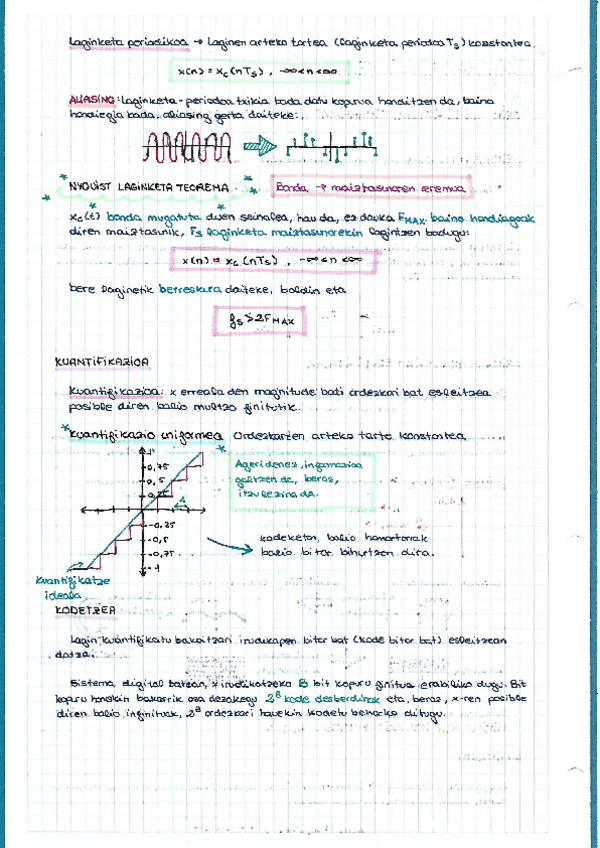 Laginketa periodikoa → Laginen arteko tartea (laginketa periodoa Ts) konstantea.
x(n) = xc(nTs), -∞<n<∞
ALIASING: Laginketa-periodoa txikia bada datu kopurua handitzen da, baina
handiegia bada, aliasing gerta daiteke:
NYQUIST LAGINKETA TEOREMA
Banda → maiztasunaren eremua
xc(t) banda mugatuta duen seinalea, hau da, ez dauka FMAX baino handiagoak
diren maiztasunik, Fs laginketa maiztasunarekin lagintzen badugu:
x(n) = xc(nTs), -∞<n<∞
bere laginetik berreskura daiteke, baldin eta
fs ≥ 2FMAX
KUANTIFIKAZIOA
Kuantifikazioa: x erreala den magnitude bati ordezkari bat esleitzea
posible diren balio multzo finitutik.
Kuantifikazio uniformea Ordezkarien arteko tarte konstantea
1
0,75
0,5
0,25
Δ
-0,25
-0,5
-0,75
-1
Ageri denez, informazioa
galtzen da, beraz,
itzulezina da.
kodeketan, balio hamartarrak
balio bitar bihurtzen dira.
Kuantifikatze
ideala
KODETZEA
Lagin kuantifikatu bakoitzari irudikapen bitar bat (kode bitar bat) esleitzean
datza.
Sistema digital batean, x irudikatzeko B bit kopuru finitua erabiliko dugu. Bit
kopuru honekin bakarrik osa dezakegu 2^B kode desberdinak eta, beraz, x-ren posible
diren balio infinituak, 2^B ordezkari hauekin kodetu beharko ditugu.